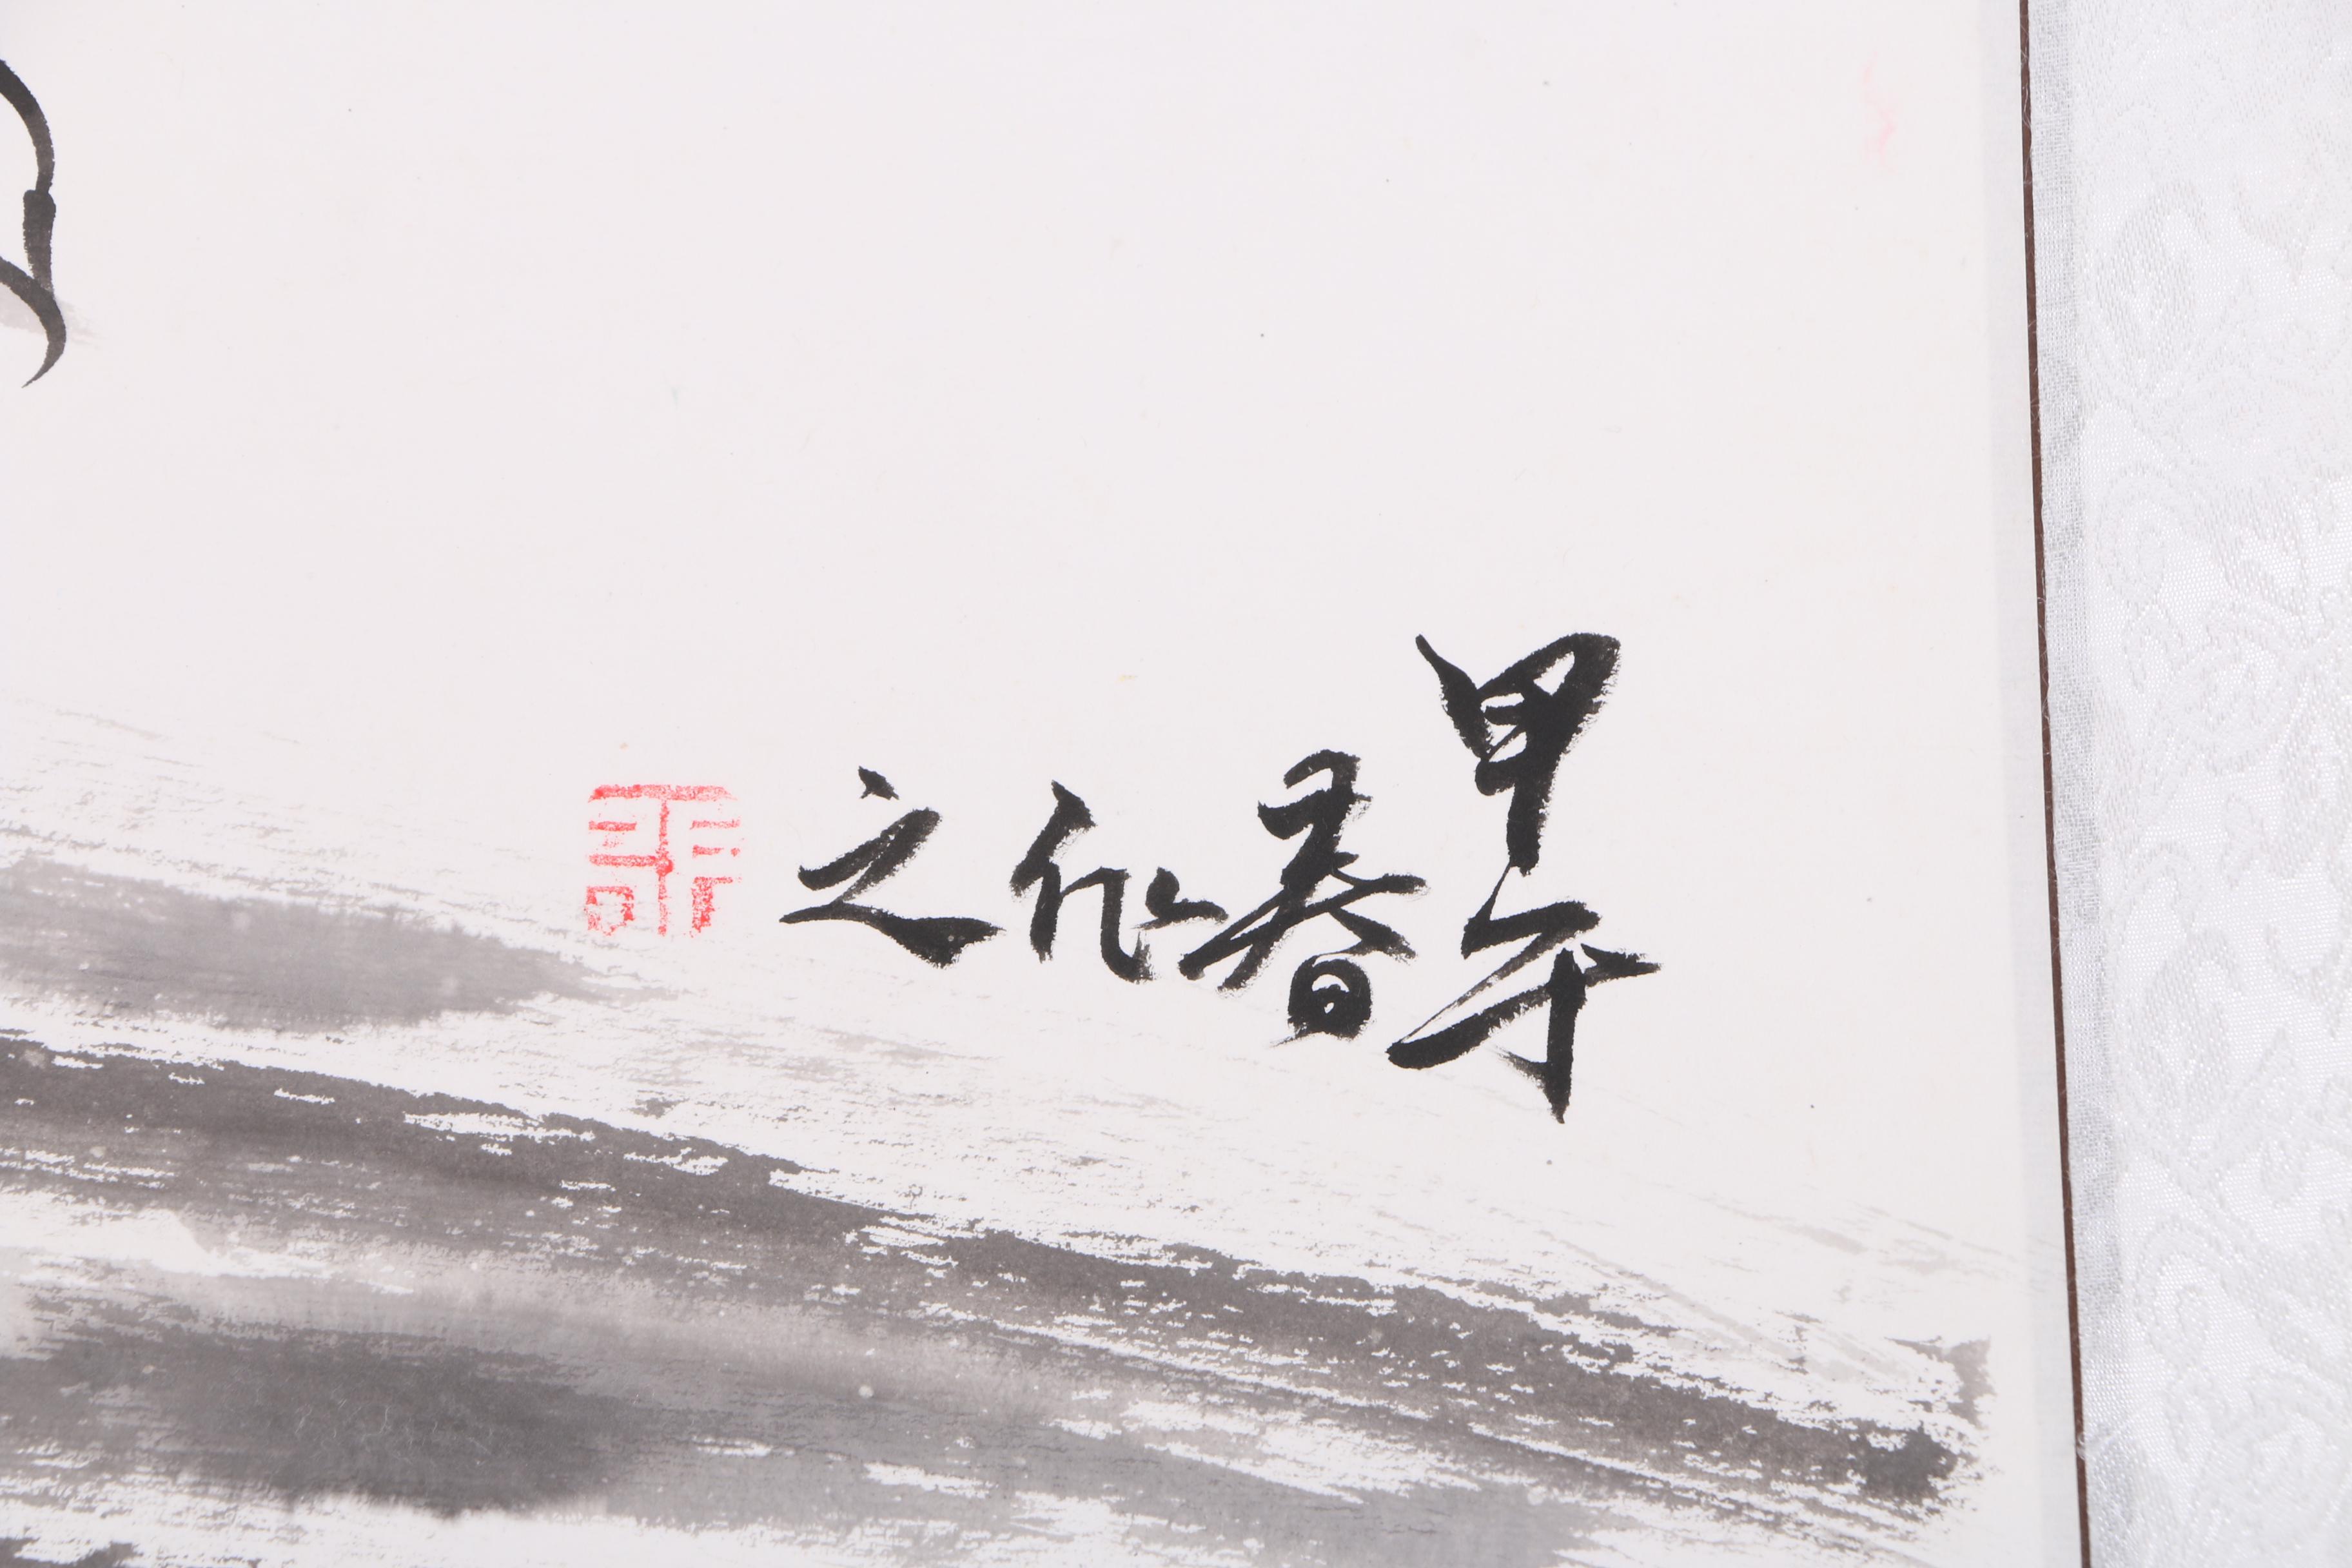 甲午
春仙之